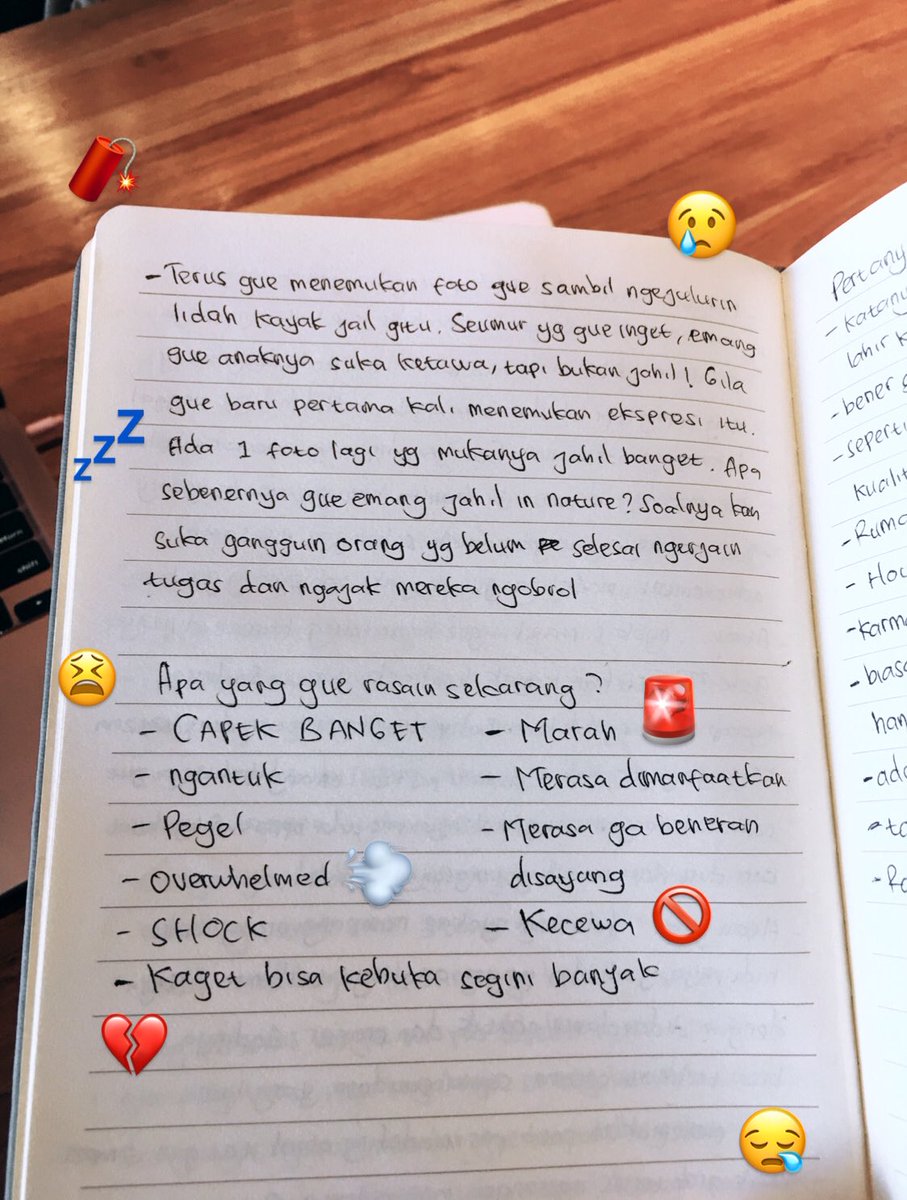 - Terus gue menemukan foto gue sambil ngejulurin
lidah kayak jail gitu. Seumur yg gue inget, emang
gue anaknya suka ketawa, tapi bukan jahil! Gila
gue baru pertama kali menemukan ekspresi itu.
Ada 1 foto lagi yg mukanya jahil banget. Apa
sebenernya gue emang jahil in nature? Soalnya kan
suka gangguin orang yg belum selesai ngerjain
tugas dan ngajak mereka ngobrol
Apa yang gue rasain sekarang?
- CAPEK BANGET
- ngantuk
- Pegel
- overwhelmed
- SHOCK
- Kaget bisa kebuka segini banyak
- Marah
- Merasa dimanfaatkan
- Merasa ga beneran
disayang
- Kecewa
zzz
Pertany
- katany
lahir k
- bener s
- seperti
kualit
- Ruma
- Hou
- karm
- biasa
han
- ada
- ta
- Ro